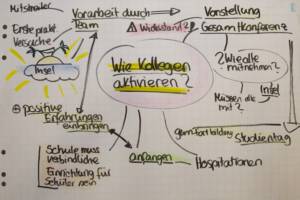 Mitstreiter
Vorarbeit durch
Team
Vorstellung
Gesamtkonferenz
Erste prakt.
Versuche
⚠ Widerstand?
Insel
Wie Kollegen
aktivieren?
? Wie alle
mitnehmen?
Müssen alle
mit?
Insel
⊕ positive
Erfahrungen
einbringen
Schule muss
verbindliche
Einrichtung für
Schüler sein
anfangen
Hospitationen
Studientag